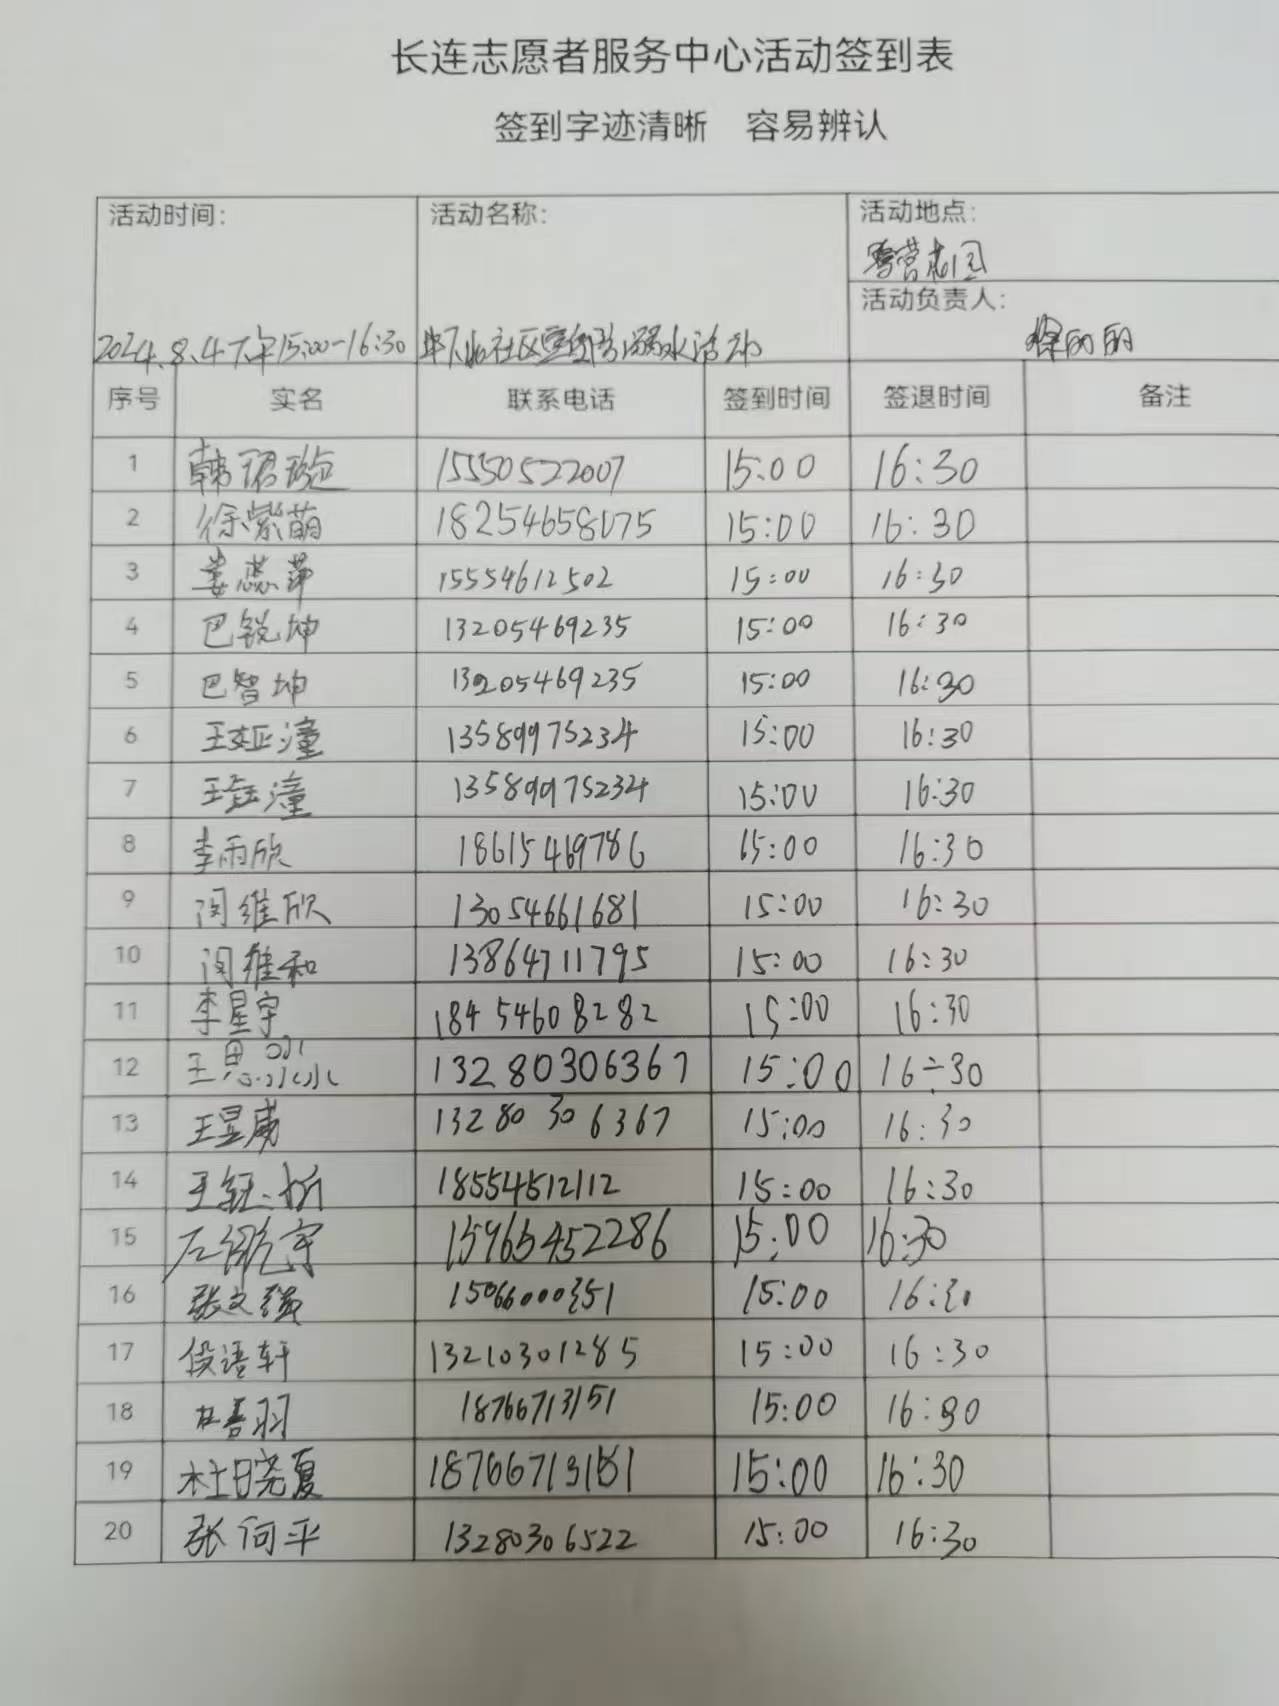 长连志愿者服务中心活动签到表
签到字迹清晰 容易辨认
活动时间: 活动名称: 活动地点:
活动负责人:
2024.8.4下午15:00-16:30 社区 溺水活动 丽丽
序号 实名 联系电话 签到时间 签退时间 备注
1 韩珺璇 15550522007 15:00 16:30
2 徐紫萌 18254658075 15:00 16:30
3 姜蕊萍 15554612502 15:00 16:30
4 巴锐坤 13205469235 15:00 16:30
5 巴智坤 13205469235 15:00 16:30
6 王娅潼 13589975234 15:00 16:30
7 王钰潼 13589975234 15:00 16:30
8 李雨欣 18615469786 15:00 16:30
9 闵维欣 13054661681 15:00 16:30
10 闵维和 13864711795 15:00 16:30
11 李星宇 18454608282 15:00 16:30
12 王思淼 13280306367 15:00 16:30
13 王昱威 13280306367 15:00 16:30
14 王钰 18554512112 15:00 16:30
15 宇 15965452286 15:00 16:30
16 张文强 15066000351 15:00 16:30
17 段语轩 13210301285 15:00 16:30
18 杜善羽 18766713151 15:00 16:30
19 杜晓夏 18766713151 15:00 16:30
20 张何平 13280306522 15:00 16:30